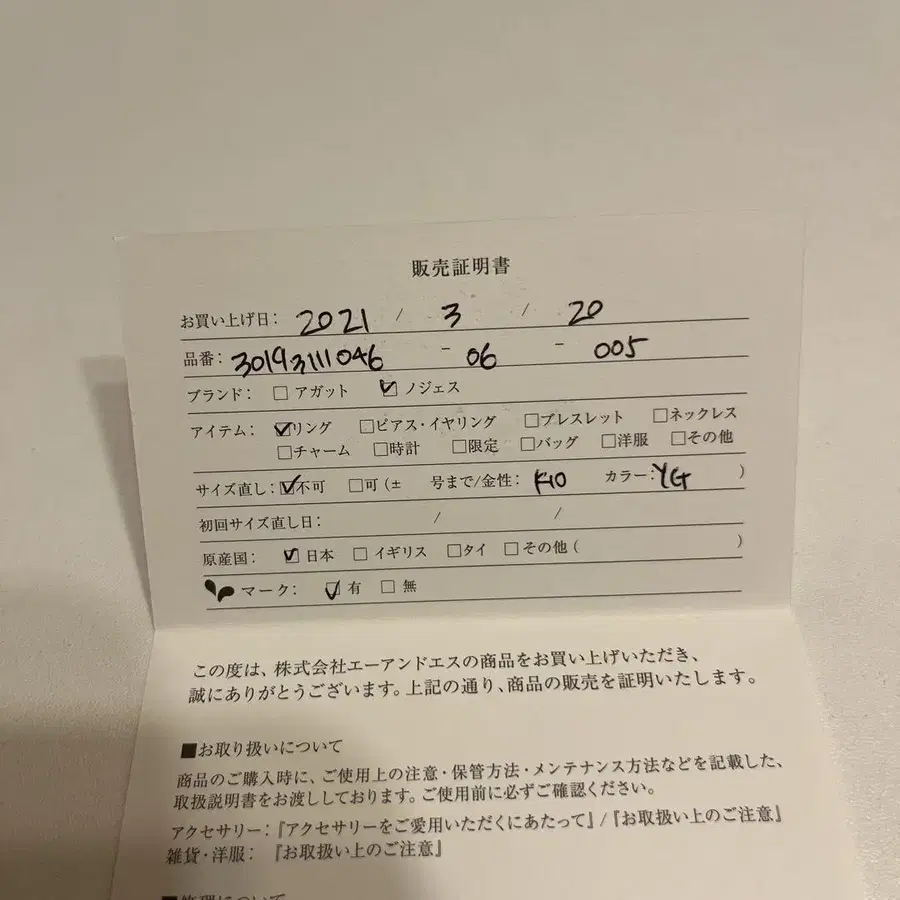 販売証明書
お買い上げ日: 2021 / 3 / 20
品番: 30193111046 - 06 - 005
ブランド: □ アガット ☑ ノジェス
アイテム: ☑リング □ピアス・イヤリング □ブレスレット □ネックレス
□チャーム □時計 □限定 □バッグ □洋服 □その他
サイズ直し: ☑不可 □可 (± 号まで/金性: K10 カラー: YG )
初回サイズ直し日: / /
原産国: ☑ 日本 □ イギリス □タイ □その他 ( )
マーク: ☑ 有 □ 無
この度は、株式会社エーアンドエスの商品をお買い上げいただき、
誠にありがとうございます。上記の通り、商品の販売を証明いたします。
■お取り扱いについて
商品のご購入時に、ご使用上の注意・保管方法・メンテナンス方法などを記載した、
取扱説明書をお渡ししております。ご使用前に必ずご確認ください。
アクセサリー:『アクセサリーをご愛用いただくにあたって』/『お取扱い上のご注意』
雑貨・洋服: 『お取扱い上のご注意』
■修理について